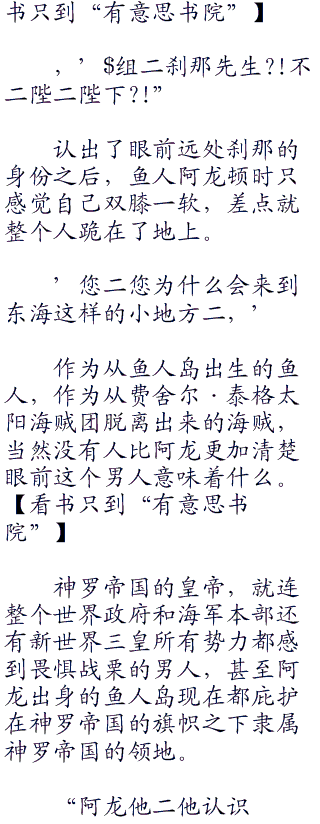 书只到“有意思书院”】
，’$组二刹那先生?!不
二陛二陛下?!”
认出了眼前远处刹那的
身份之后，鱼人阿龙顿时只
感觉自己双膝一软，差点就
整个人跪在了地上。
’您二您为什么会来到
东海这样的小地方二，’
作为从鱼人岛出生的鱼
人，作为从费舍尔·泰格太
阳海贼团脱离出来的海贼，
当然没有人比阿龙更加清楚
眼前这个男人意味着什么。
【看书只到“有意思书
院”】
神罗帝国的皇帝，就连
整个世界政府和海军本部还
有新世界三皇所有势力都感
到畏惧战栗的男人，甚至阿
龙出身的鱼人岛现在都庇护
在神罗帝国的旗帜之下隶属
神罗帝国的领地。
“阿龙他二他认识